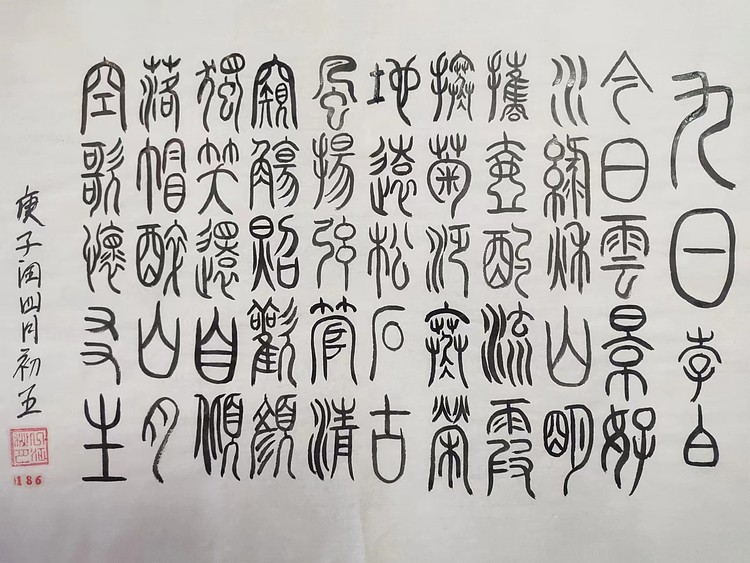 九日 李白
今日雲景好
水綠秋山明
攜壺酌流霞
搴菊泛寒榮
地遠松石古
風揚弦管清
窺觴照歡顏
獨笑還自傾
落帽醉山月
空歌懷友生
庚子閏四月初五
186